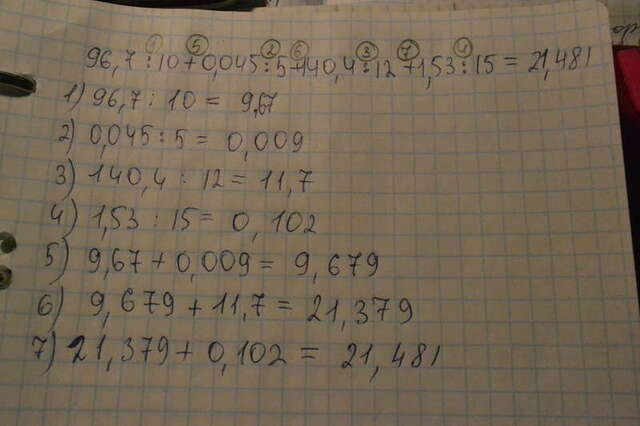 ① ⑤ ② ⑥ ③ ⑦ ④
96,7 : 10 + 0,045 : 5 + 140,4 : 12 + 1,53 : 15 = 21,481
1) 96,7 : 10 = 9,67
2) 0,045 : 5 = 0,009
3) 140,4 : 12 = 11,7
4) 1,53 : 15 = 0,102
5) 9,67 + 0,009 = 9,679
6) 9,679 + 11,7 = 21,379
7) 21,379 + 0,102 = 21,481